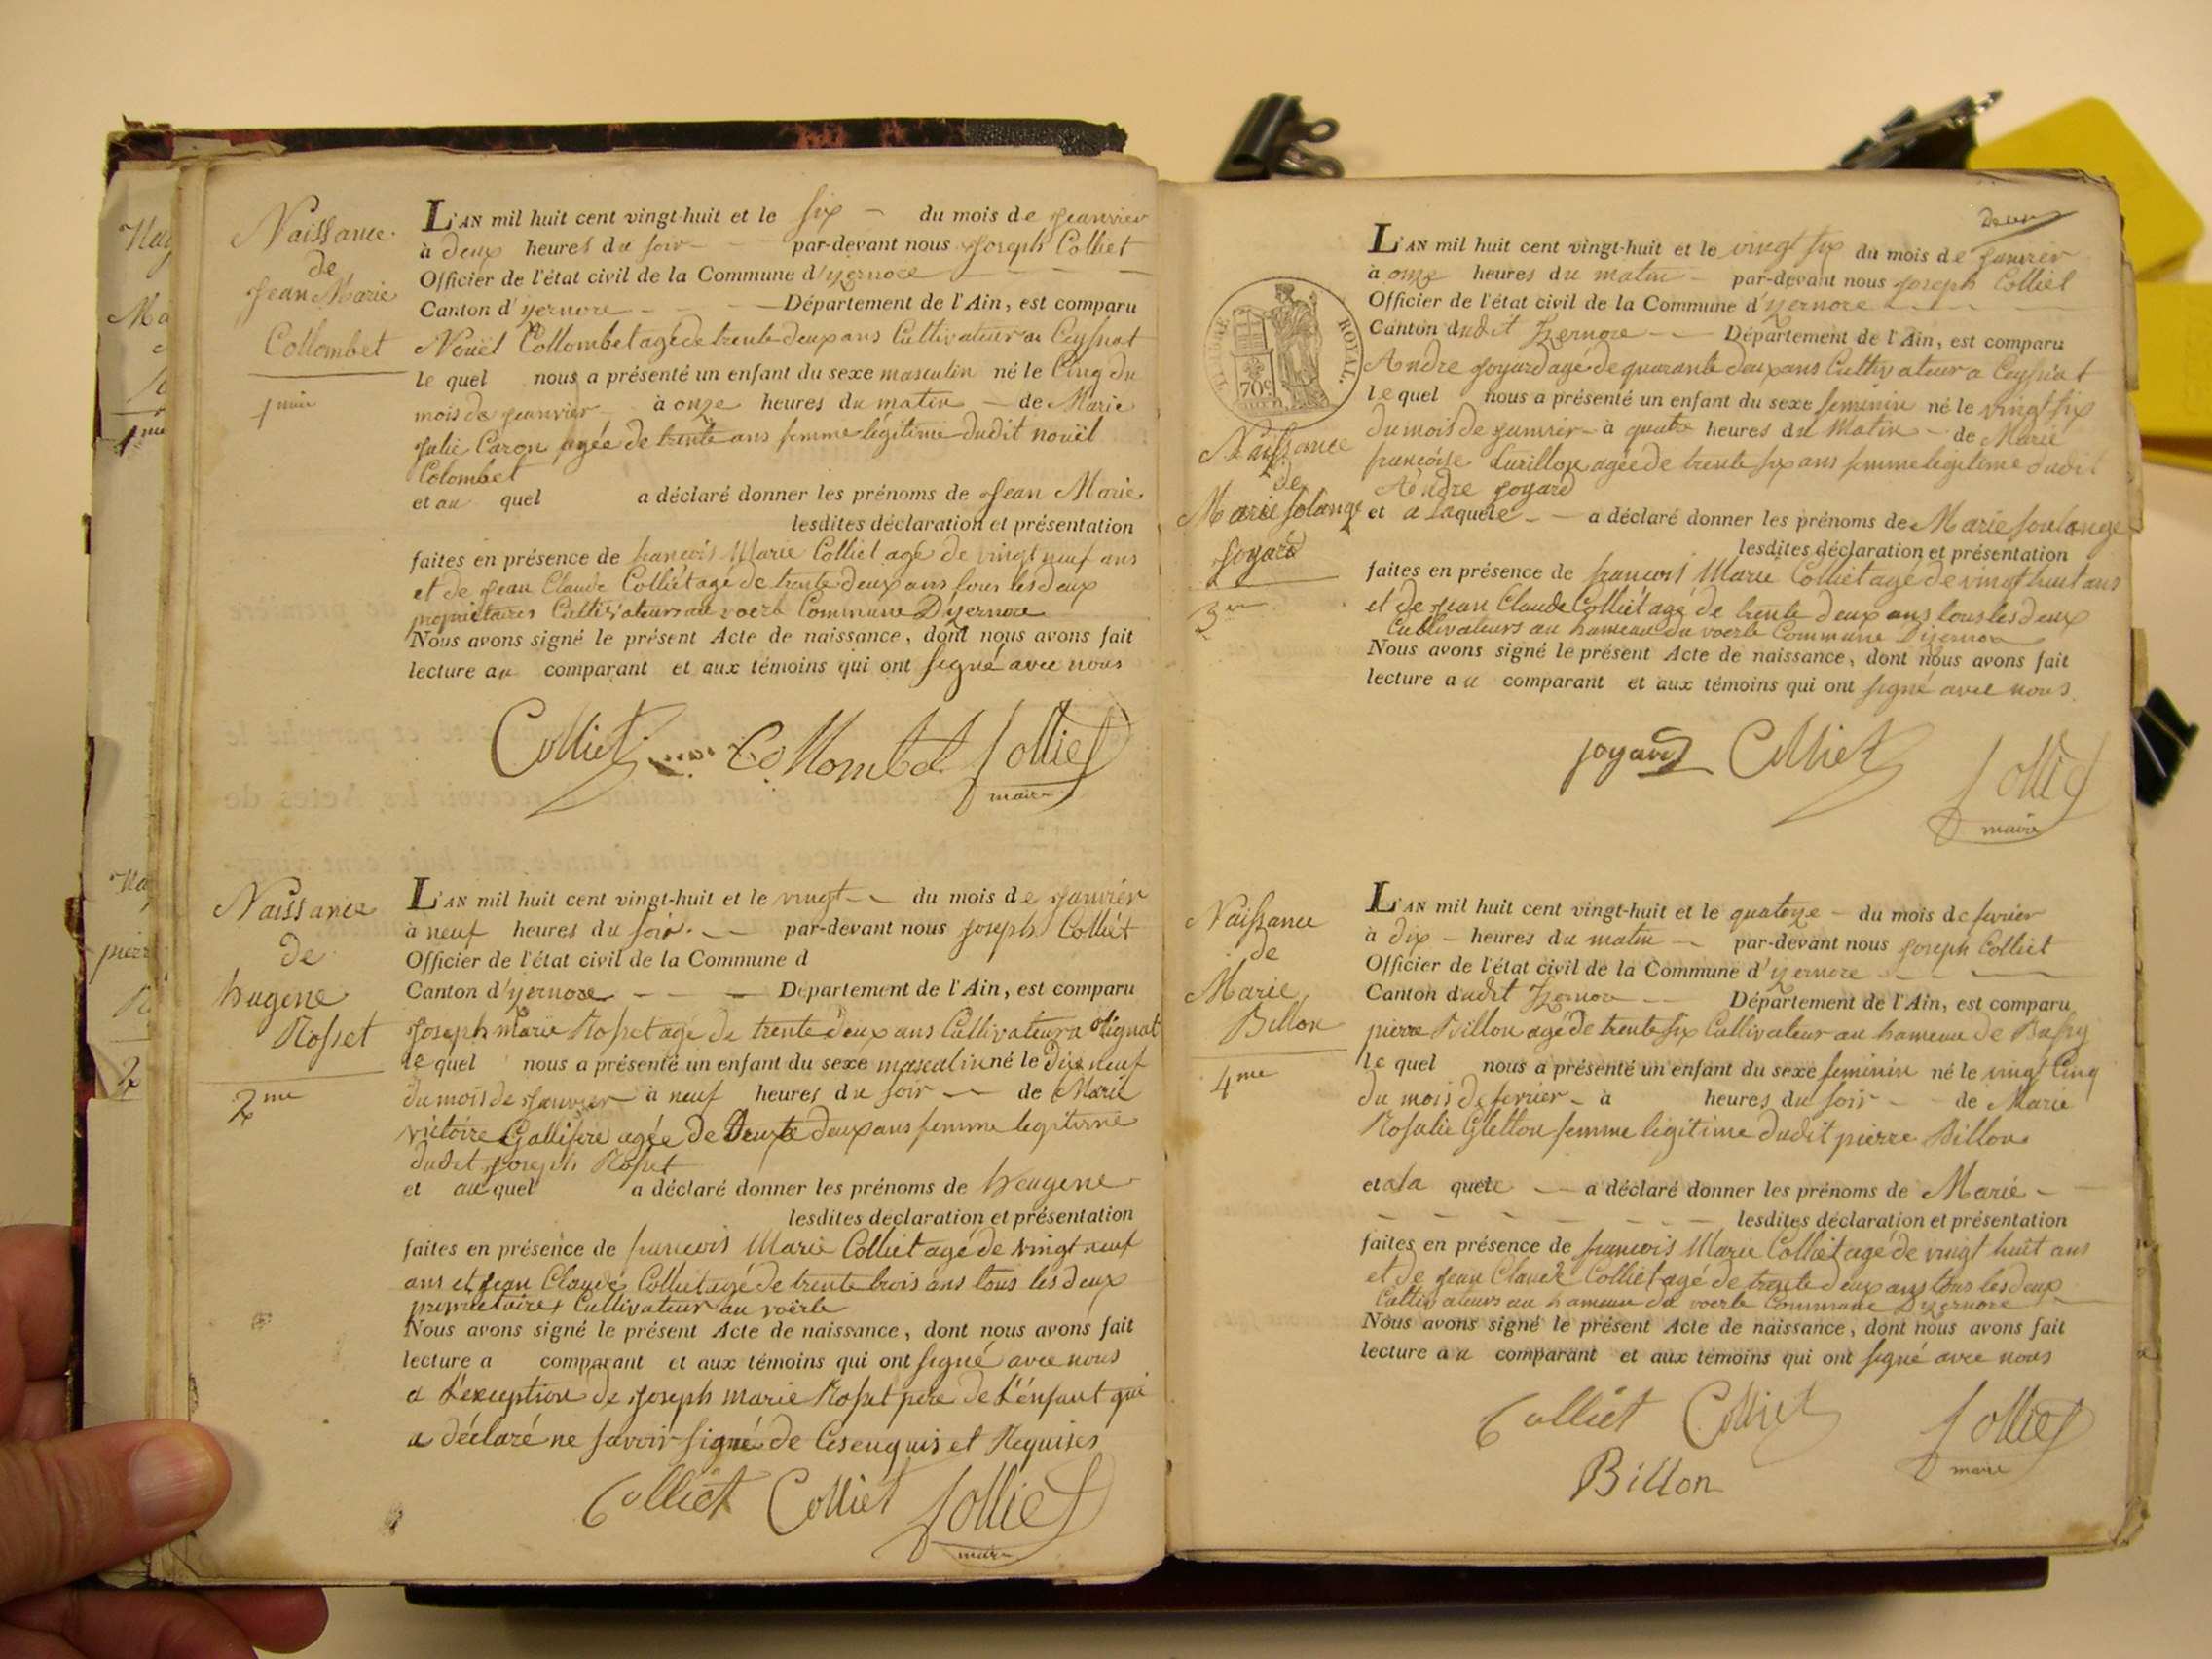 Naissance
de
Jean Marie
Collombet
1mier
L'AN mil huit cent vingt-huit et le six du mois de Jeanvier
à deux heures du soir par-devant nous Joseph Colliet
Officier de l'état civil de la Commune d'yzernore
Canton d'yzernore Département de l'Ain, est comparu
Nouël Collombet agé de trente deux ans Cultivateur a Ceyssiat
le quel nous a présenté un enfant du sexe masculin né le Cinq du
mois de Jeanvier à onze heures du matin de Marie
Julie Caron agée de trente ans femme legitime dudit nouël
Colombet
et au quel a déclaré donner les prénoms de Jean Marie
lesdites déclaration et présentation
faites en présence de francois Marie Colliet agé de vingt neuf ans
et de Jean Claude Colliet agé de trente deux ans tous les deux
proprietaires Cultivateurs au voerle Commune Dyzernore
Nous avons signé le présent Acte de naissance, dont nous avons fait
lecture au comparant et aux témoins qui ont signé avec nous
Colliet Collombet Colliet
maire
Naissance
de
heugene
Rosset
2me
L'AN mil huit cent vingt-huit et le vingt du mois de Janvier
à neuf heures du soir par-devant nous Joseph Colliét
Officier de l'état civil de la Commune d
Canton d'yzernore Département de l'Ain, est comparu
Joseph marie Rosset agé de trente deux ans Cultivateur a Olignat
le quel nous a présenté un enfant du sexe masculin né le Dix neuf
du mois de Janvier à neuf heures du soir de Marie
victoire Gallifere agée de trente deux ans femme legitime
dudit Joseph Rosset
et au quel a déclaré donner les prénoms de heugene
lesdites declaration et présentation
faites en présence de francois Marie Colliet agé de vingt neuf
ans et Jean Claude Colliet agé de trente trois ans tous les deux
proprietaires Cultivateur au voërle
Nous avons signé le présent Acte de naissance, dont nous avons fait
lecture a comparant et aux témoins qui ont signé avec nous
a L'exception de Joseph marie Rosset pere de L'énfant qui
a déclaré ne savoir signé de Ce enquis et Requises
Colliet Colliet Colliet
maire
deux
TIMBRE ROYAL
70c
Naissance
de
Marie solange
Joyard
3me
L'AN mil huit cent vingt-huit et le vingt six du mois de Janvier
à onze heures du matin par-devant nous Joseph Colliet
Officier de l'état civil de la Commune d'yzernore
Canton dudit Izernore Département de l'Ain, est comparu
Andre Joyard agé de quarante deux ans Cultivateur a Ceyssiat
le quel nous a présenté un enfant du sexe feminin né le vingt six
du mois de Janvier à quatre heures du Matin de Marie
francoise Curillon agée de trente six ans femme legitime dudit
Andre Joyard
et a Laquele a déclaré donner les prénoms de Marie soulange
lesdites déclaration et présentation
faites en présence de francois Marie Colliet agé de vingt huit ans
et de Jean Claude Colliét agé de trente deux ans tous les deux
Cultivateurs au hameau du voerle Commune Dizernore
Nous avons signé le présent Acte de naissance, dont nous avons fait
lecture au comparant et aux témoins qui ont signé avec nous
joyard Colliet Colliet
maire
Naissance
de
Marie
Billon
4me
L'AN mil huit cent vingt-huit et le quatorze du mois de fevrier
à dix heures du matin par-devant nous Joseph Colliet
Officier de l'état civil de la Commune d'yzernore
Canton dudit Izernore Département de l'Ain, est comparu
pierre Billon agé de trente six Cultivateur au hameau de Bussy
le quel nous a présenté un enfant du sexe feminin né le vingt Cinq
du mois de fevrier à heures du soir de Marie
Rosalie Gletton femme legitime dudit pierre Billon
et a la quele a déclaré donner les prénoms de Marie
lesdites déclaration et présentation
faites en présence de francois Marie Colliet agé de vingt huit ans
et de Jean Claude Colliet agé de trente deux ans tous les deux
Cultivateurs au hameau du voerle Commune Dyzernore
Nous avons signé le présent Acte de naissance, dont nous avons fait
lecture au comparant et aux témoins qui ont signé avec nous
Colliet Colliet Colliet
maire
Billon